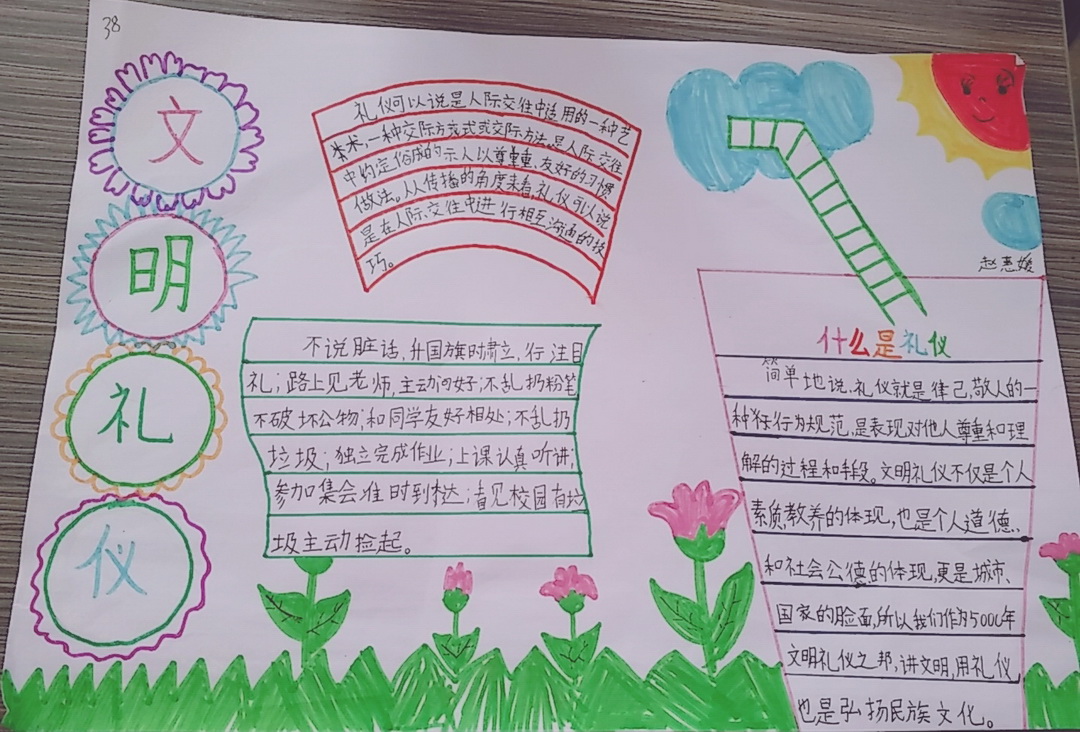 38
文
明
礼
仪
礼仪可以说是人际交往中适用的一种艺
术,一种交际方式或交际方法。是人际交往
中约定俗成的示人以尊重、友好的习惯
做法。从传播的角度来看,礼仪可以说
是在人际交往中进行相互沟通的技
巧。
不说脏话,升国旗时肃立,行注目
礼;路上见老师,主动问好;不乱扔粉笔
不破坏公物;和同学友好相处;不乱扔
垃圾;独立完成作业;上课认真听讲;
参加集会准时到达;看见校园有垃
圾主动捡起。
赵惠媛
什么是礼仪
简单地说,礼仪就是律己,敬人的一
种行为规范,是表现对他人尊重和理
解的过程和手段。文明礼仪不仅是个人
素质教养的体现,也是个人道德、
和社会公德的体现,更是城市、
国家的脸面,所以我们作为5000年
文明礼仪之邦,讲文明,用礼仪,
也是弘扬民族文化。